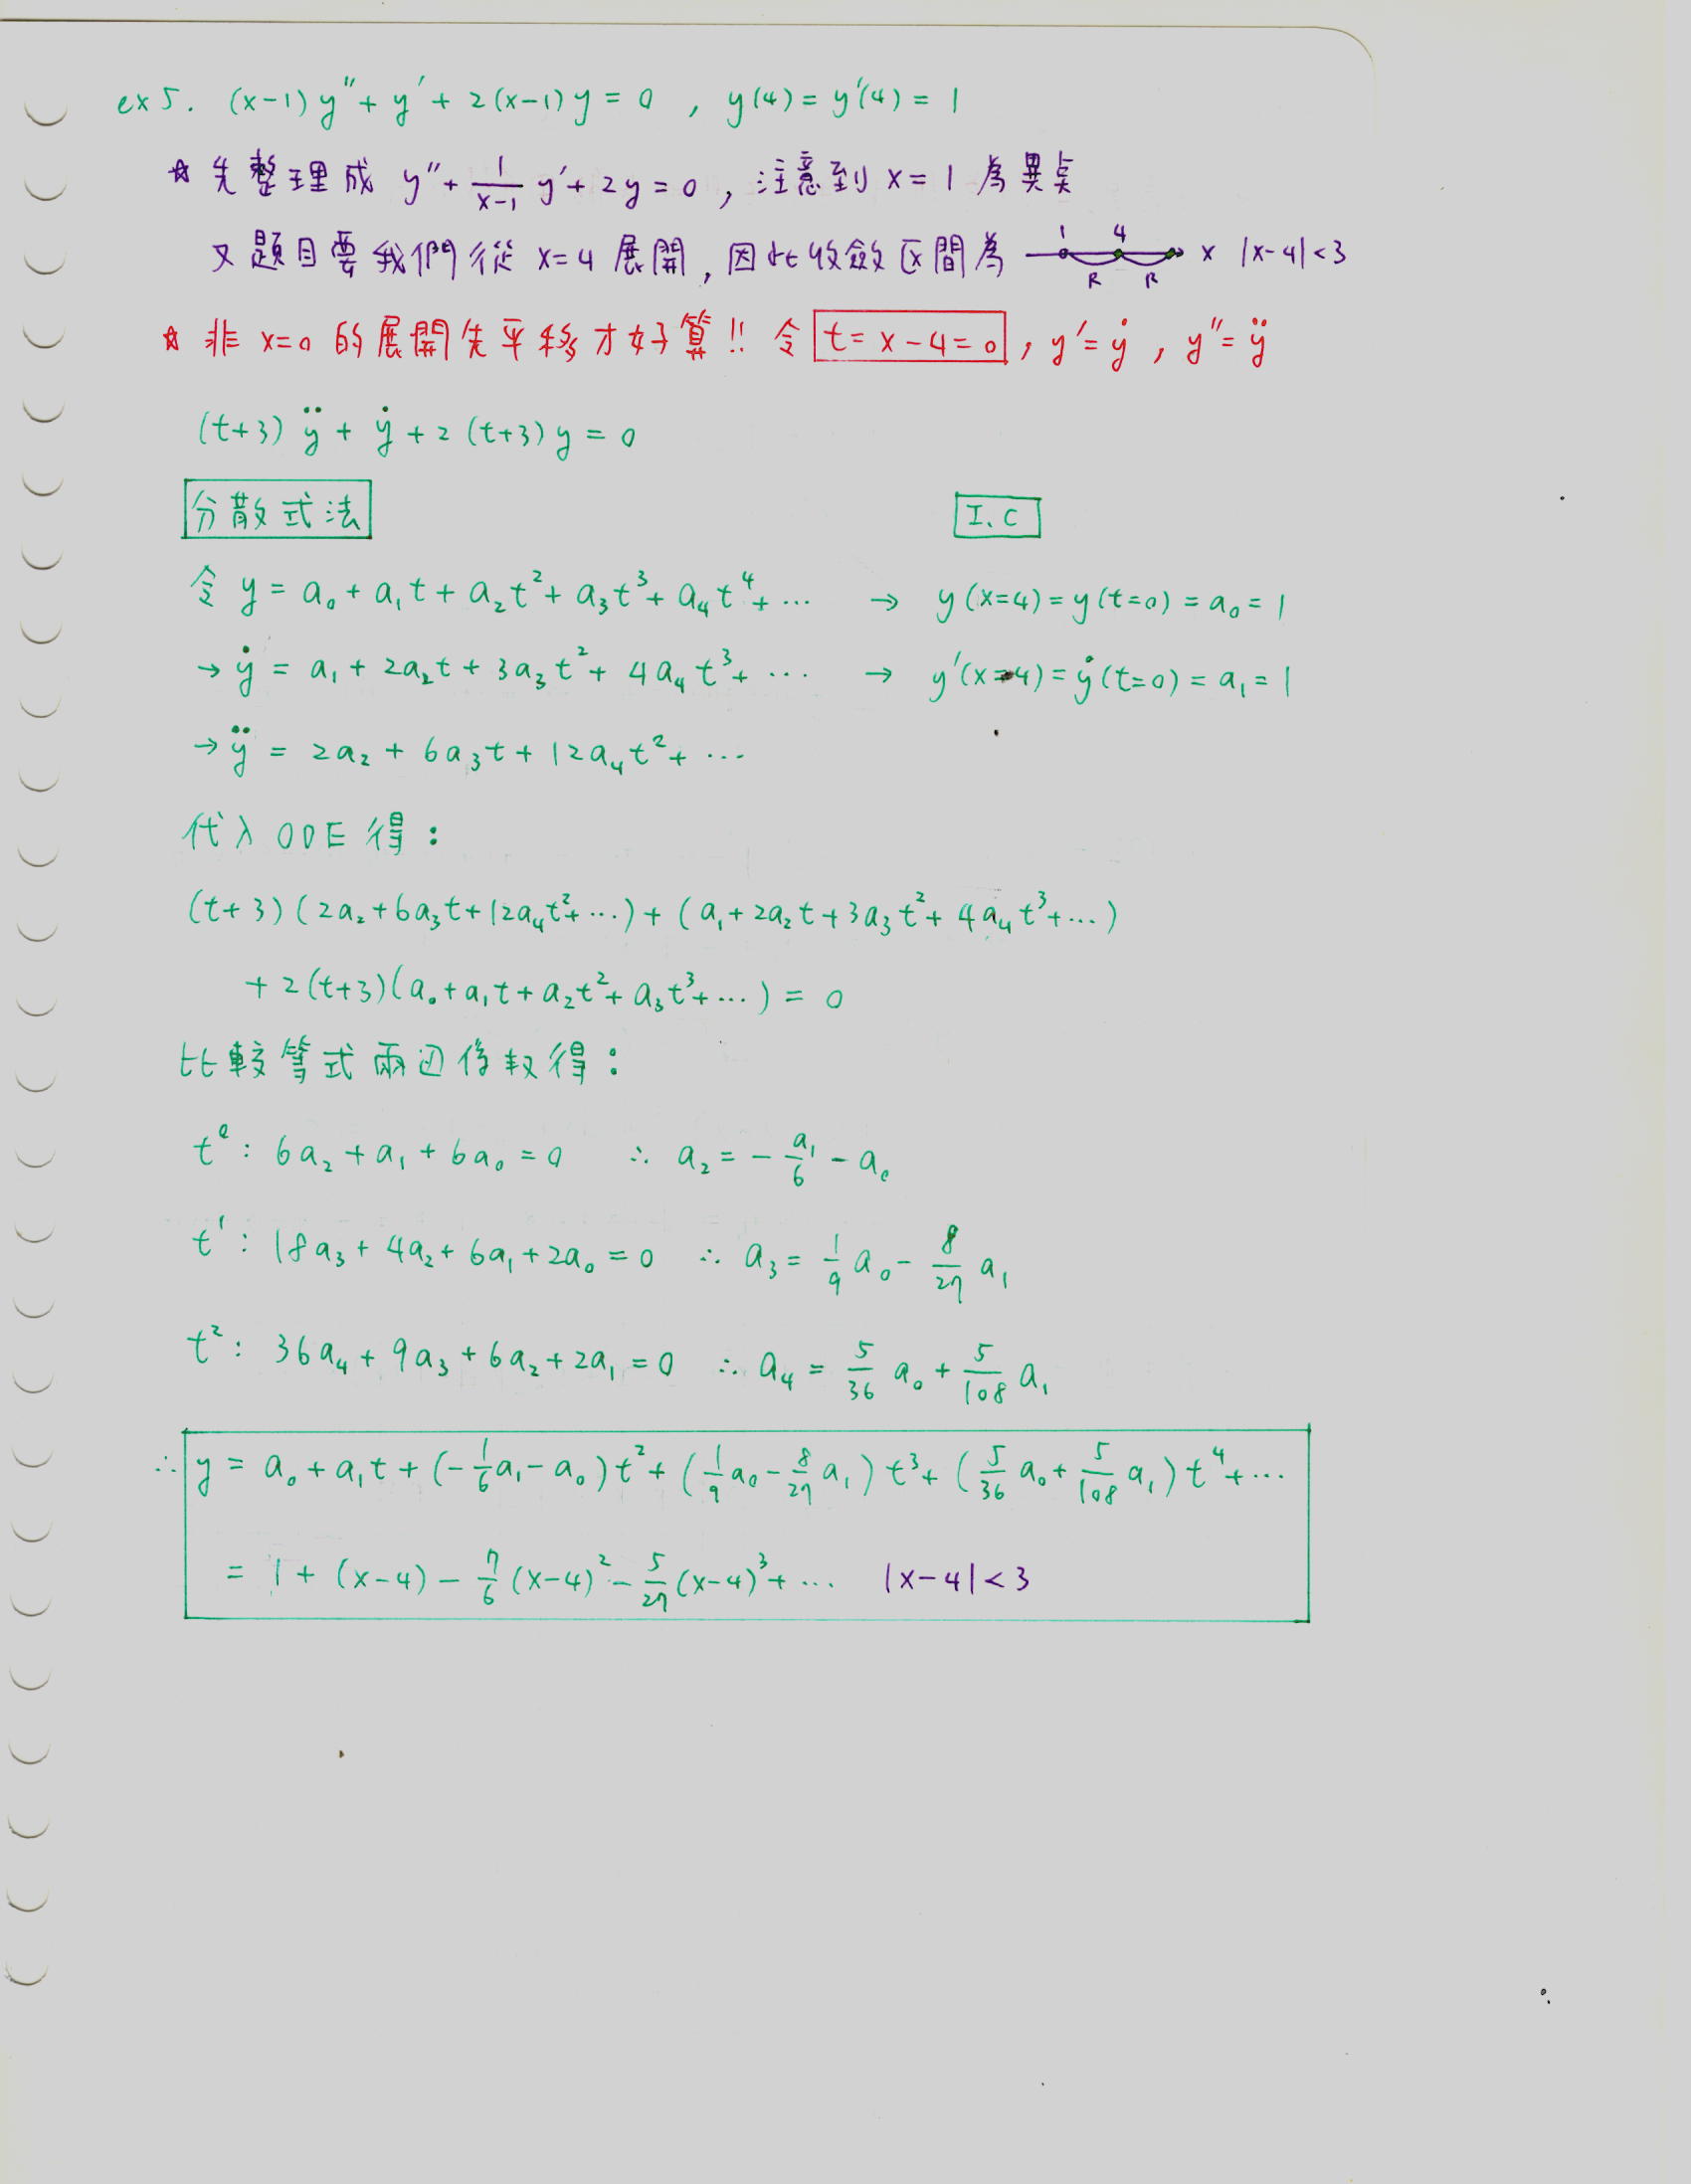 ex5. (x-1)y''+y'+2(x-1)y=0 , y(4)=y'(4)=1
☆ 先整理成 y''+\frac{1}{x-1}y'+2y=0 , 注意到 x=1 為異点
又題目要我們從 x=4 展開, 因此收斂区間為 1 4 R R x |x-4|<3
☆ 非 x=0 的展開先平移才好算!! 令 t=x-4=0 , y'=ẏ , y''=ÿ
(t+3)ÿ+ẏ+2(t+3)y=0
分散式法 I.C
令 y=a₀+a₁t+a₂t²+a₃t³+a₄t⁴+… → y(x=4)=y(t=0)=a₀=1
→ ẏ=a₁+2a₂t+3a₃t²+4a₄t³+… → y'(x=4)=ẏ(t=0)=a₁=1
→ ÿ=2a₂+6a₃t+12a₄t²+…
代入ODE得:
(t+3)(2a₂+6a₃t+12a₄t²+…)+(a₁+2a₂t+3a₃t²+4a₄t³+…)
+2(t+3)(a₀+a₁t+a₂t²+a₃t³+…)=0
比較等式兩边係数得:
t⁰: 6a₂+a₁+6a₀=0 ∴ a₂=-\frac{a₁}{6}-a₀
t¹: 18a₃+4a₂+6a₁+2a₀=0 ∴ a₃=\frac{1}{9}a₀-\frac{8}{27}a₁
t²: 36a₄+9a₃+6a₂+2a₁=0 ∴ a₄=\frac{5}{36}a₀+\frac{5}{108}a₁
∴ y=a₀+a₁t+(-\frac{1}{6}a₁-a₀)t²+(\frac{1}{9}a₀-\frac{8}{27}a₁)t³+(\frac{5}{36}a₀+\frac{5}{108}a₁)t⁴+…
=1+(x-4)-\frac{7}{6}(x-4)²-\frac{5}{27}(x-4)³+… |x-4|<3